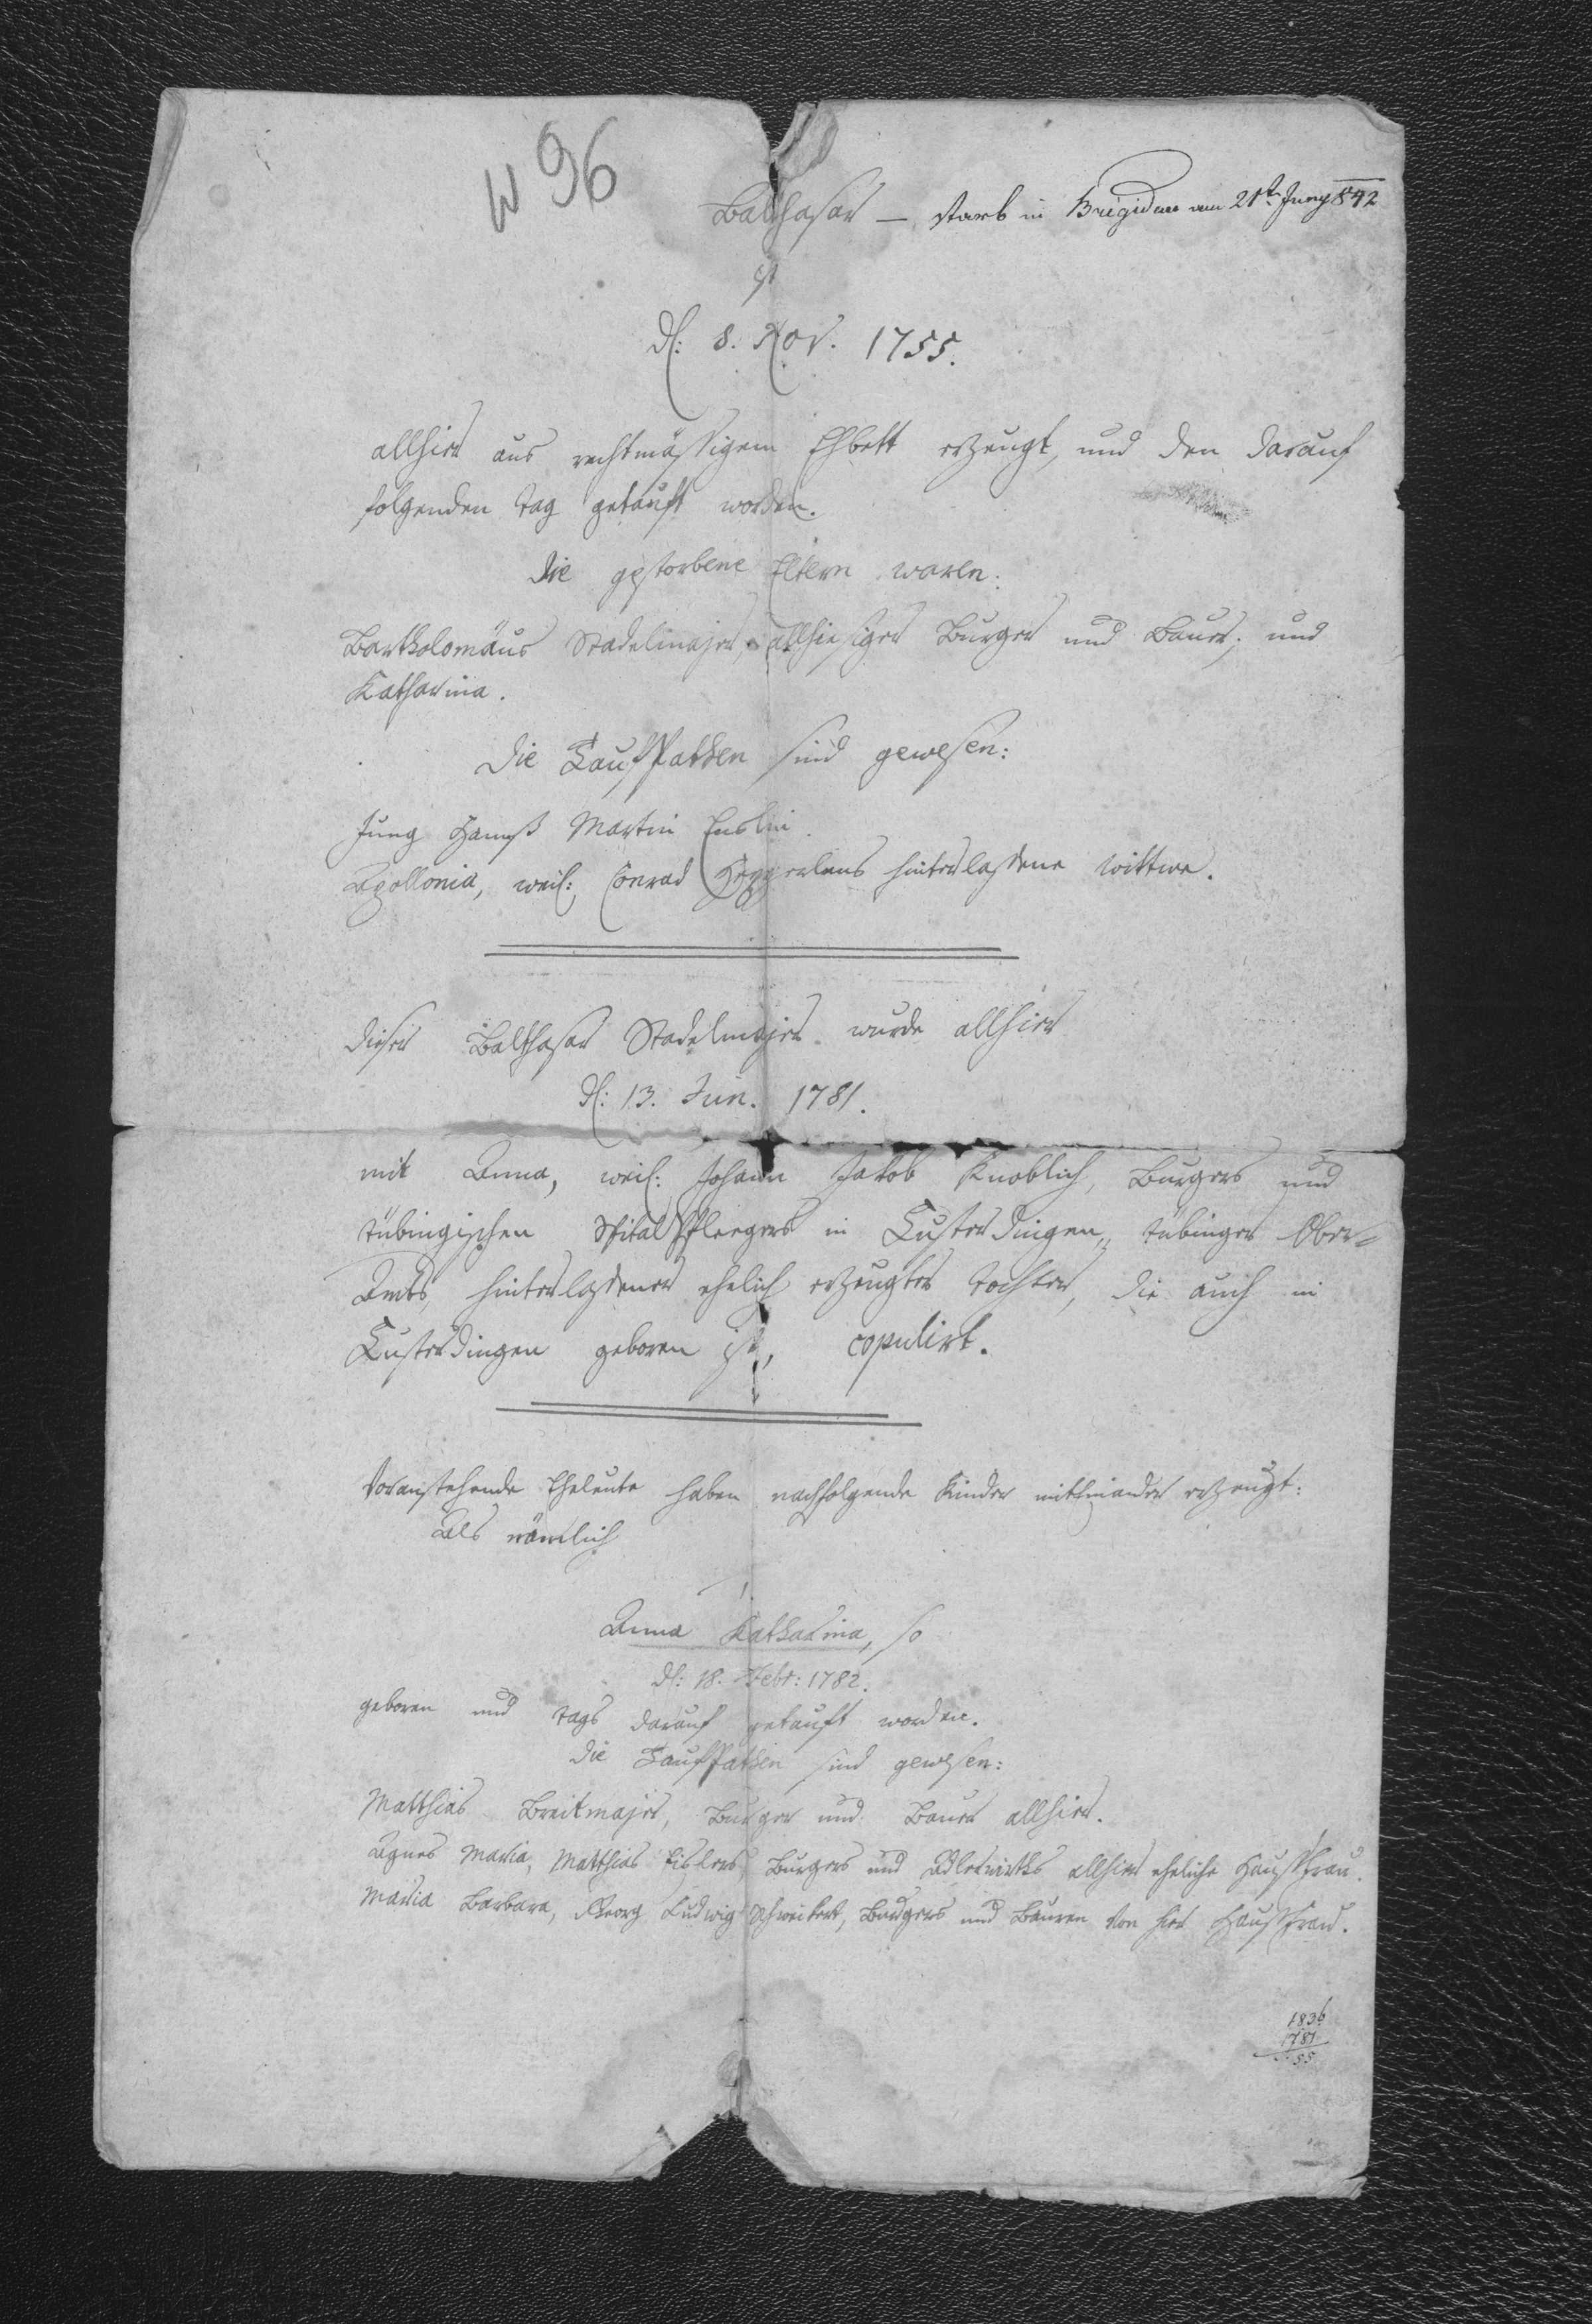 W 96
Balthasar — starb in Brigidau am 21t. Juny 842
ist
d: 8. Nov. 1755.
allhier aus rechtmässigem Ehbett erzeugt, und den darauf
folgenden Tag getauft worden.
Die gestorbene Eltern waren:
Bartholomäus Stadelmajer, allhiesiger Burger und Bauer; und
Katharina.
Die TaufPathen sind gewesen:
Jung Hannß Martin Enslin.
Apollonia, weil: Conrad hinterlassene Wittwe.
Dieser Balthasar Stadelmajer wurde allhier
d: 13. Jun. 1781.
mit Anna, weil: Johann Jakob Knoblich, Burgers und
tübingischen SpitalPflegers in Kusterdingen, tübinger Ober-
Amts, hinterlassener ehelich erzeugter Tochter, die auch in
Kusterdingen geboren ist, copulirt.
Voranstehende Eheleute haben nachfolgende Kinder miteinander erzeugt:
Als nämlich
1.
Anna Katharina, so
d: 18. Febr: 1782.
geboren und tags darauf getauft worden.
Die TaufPathen sind gewesen:
Matthias Breitmajer, Burger und Bauer allhier.
Agnes Maria, Matthias Eislers, Burgers und Adlerwirths allhier eheliche Haußfrau.
Maria Barbara, Georg Ludwig Schweikert, Burgers und Bauren von hier Haußfrau.
1836
1781
55